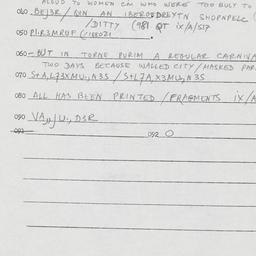 ALOUD TO WOMEN WHO WERE TOO BUSY TO
040 BEJ3R / GUN AN IBEROEDREYTN SHOPNPELL
/DITTY (981 QT ix/A/517
050 P1.R3MRUF (188021
060 – BUT IN TORNE PURIM A REGULAR CARNIVA
TWO DAYS BECAUSE WALLED CITY / MASKED PAR
070 S+A,L73XMU,,N3S / S+L7A,X3MU,,N3S
080 ALL HAS BEEN PRINTED / FRAGMENTS ix/A
090 VA,,JU,,D3R
092 O